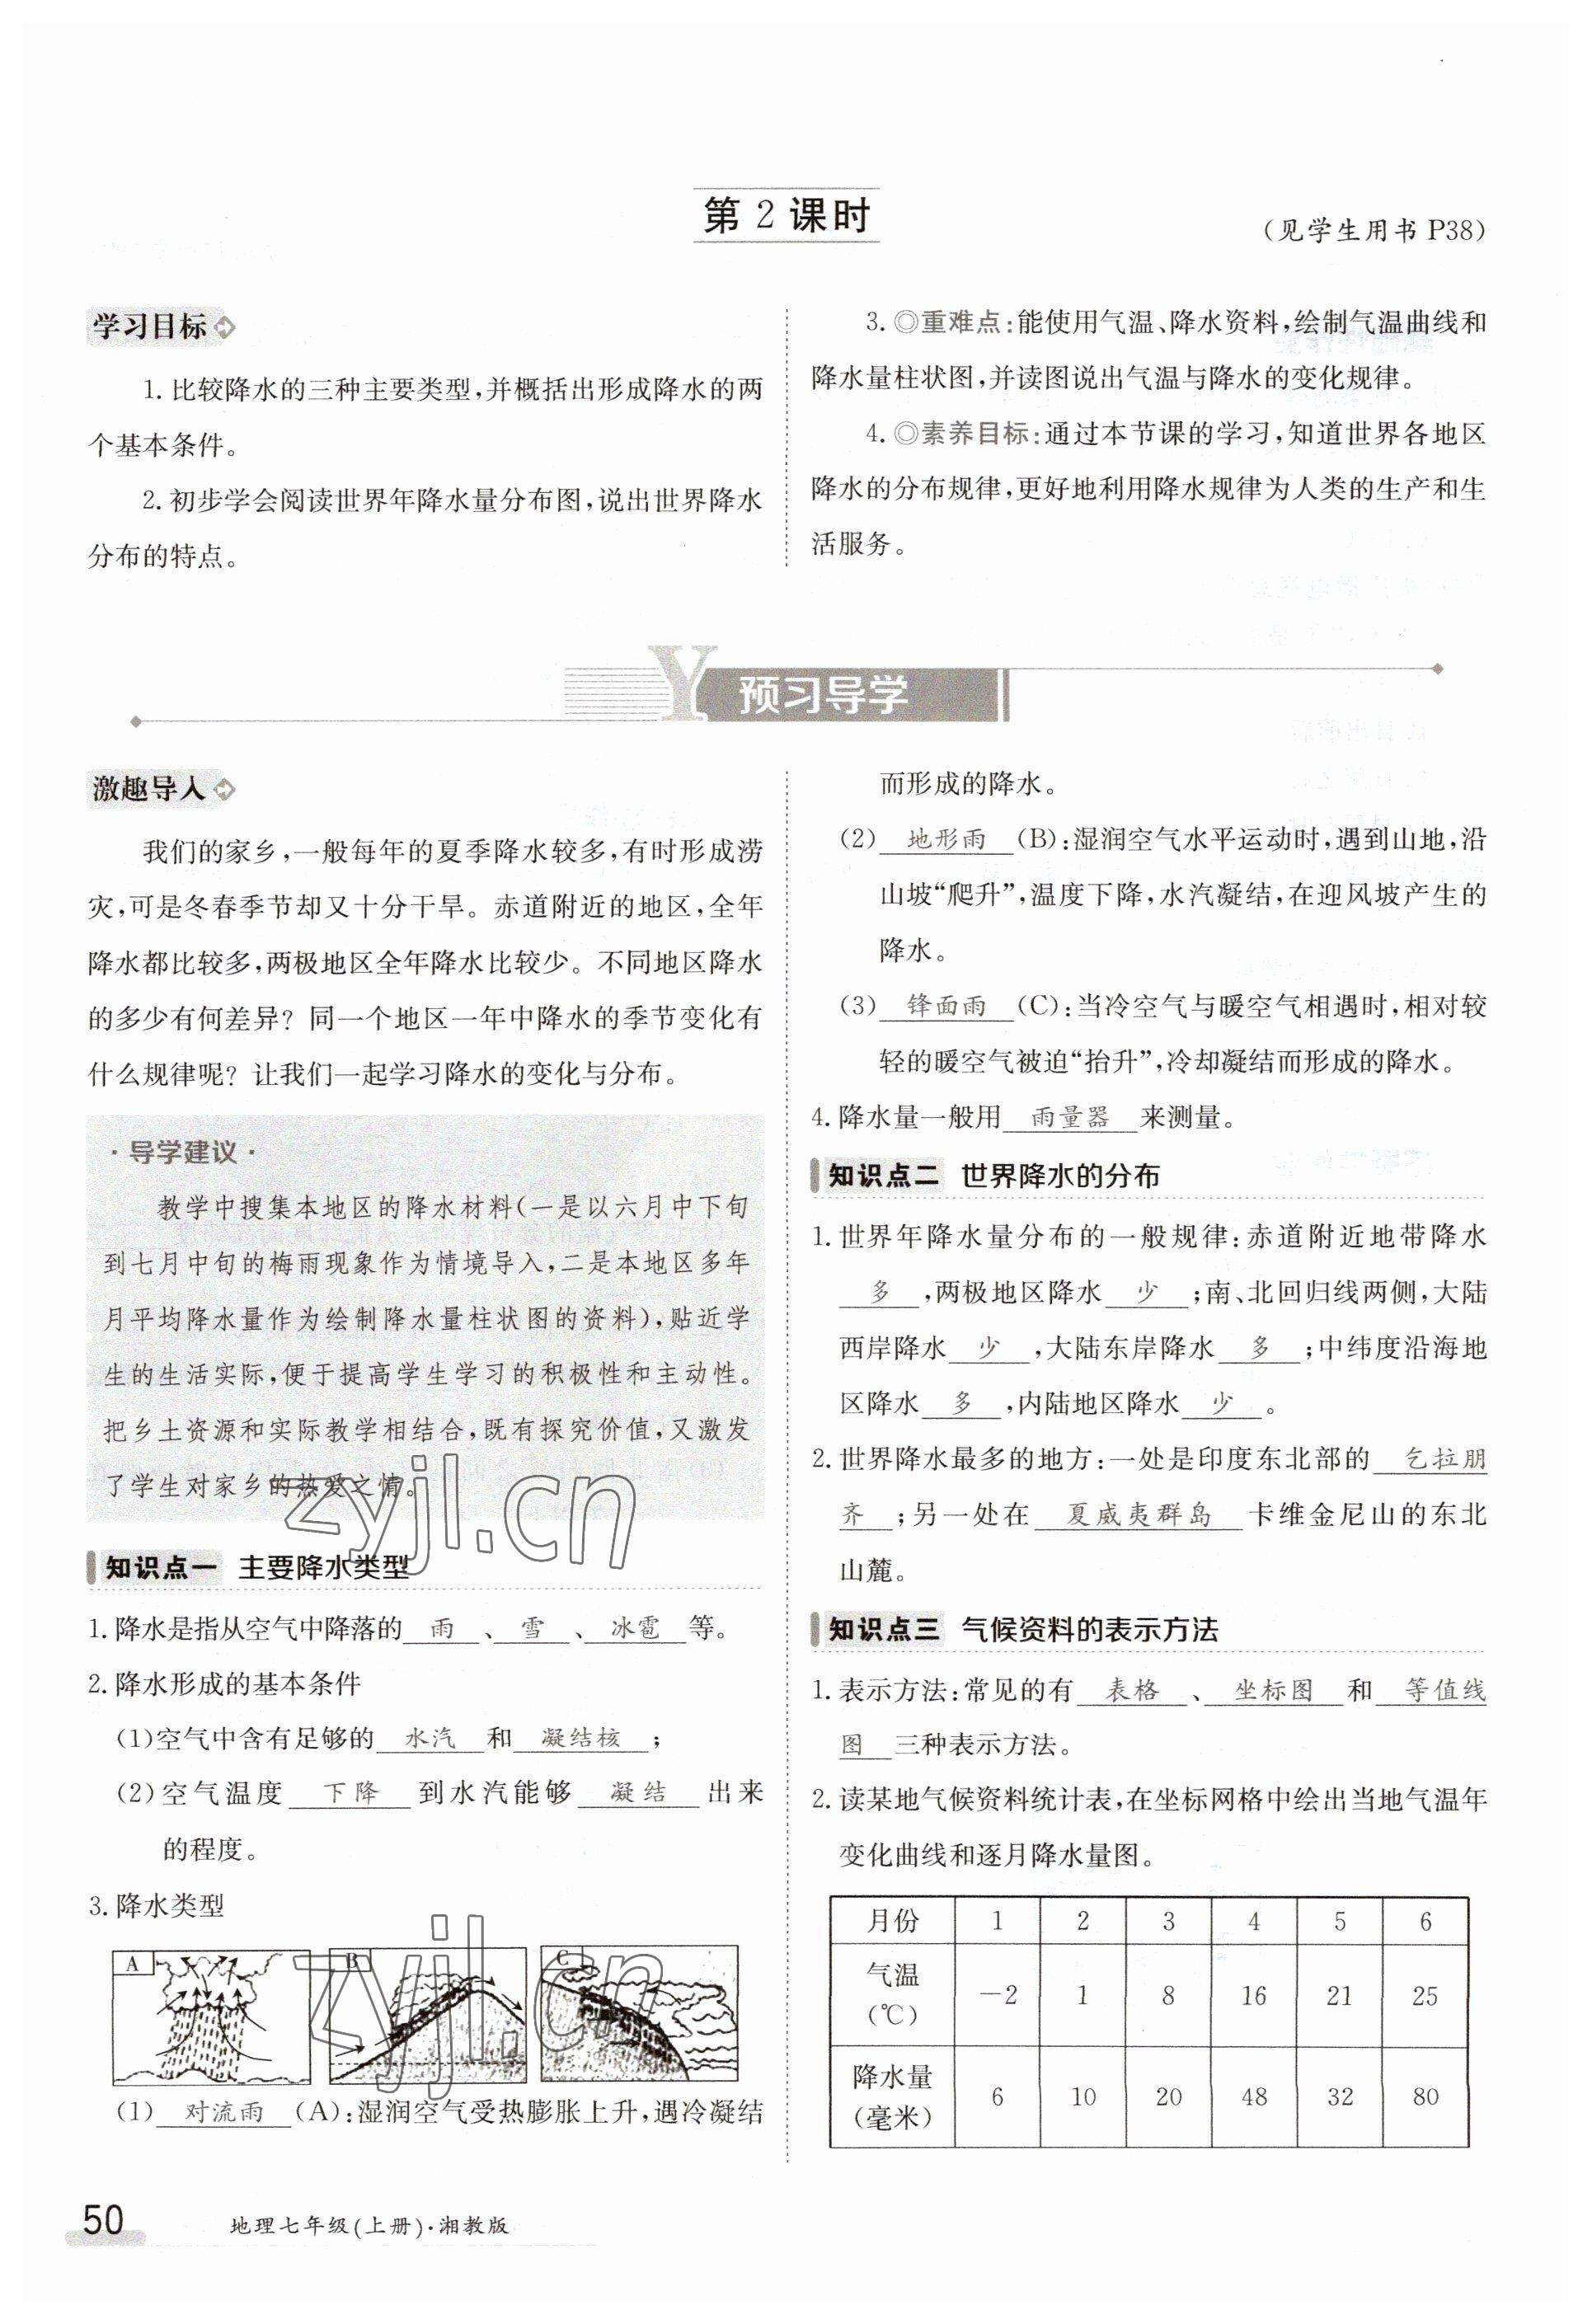 第2课时
(见学生用书 P38)
学习目标
1. 比较降水的三种主要类型,并概括出形成降水的两
个基本条件。
2. 初步学会阅读世界年降水量分布图,说出世界降水
分布的特点。
3. ◎重难点:能使用气温、降水资料,绘制气温曲线和
降水量柱状图,并读图说出气温与降水的变化规律。
4. ◎素养目标:通过本节课的学习,知道世界各地区
降水的分布规律,更好地利用降水规律为人类的生产和生
活服务。
Y 预习导学
激趣导入
我们的家乡,一般每年的夏季降水较多,有时形成涝
灾,可是冬春季节却又十分干旱。赤道附近的地区,全年
降水都比较多,两极地区全年降水比较少。不同地区降水
的多少有何差异? 同一个地区一年中降水的季节变化有
什么规律呢? 让我们一起学习降水的变化与分布。
·导学建议·
教学中搜集本地区的降水材料(一是以六月中下旬
到七月中旬的梅雨现象作为情境导入,二是本地区多年
月平均降水量作为绘制降水量柱状图的资料),贴近学
生的生活实际,便于提高学生学习的积极性和主动性。
把乡土资源和实际教学相结合,既有探究价值,又激发
了学生对家乡的热爱之情。
zyjl.cn
知识点一 主要降水类型
1. 降水是指从空气中降落的 雨 、 雪 、 冰雹 等。
2. 降水形成的基本条件
(1)空气中含有足够的 水汽 和 凝结核 ;
(2)空气温度 下降 到水汽能够 凝结 出来
的程度。
3. 降水类型
A
B
C
zyjl.cn
(1) 对流雨 (A):湿润空气受热膨胀上升,遇冷凝结
而形成的降水。
(2) 地形雨 (B):湿润空气水平运动时,遇到山地,沿
山坡“爬升”,温度下降,水汽凝结,在迎风坡产生的
降水。
(3) 锋面雨 (C):当冷空气与暖空气相遇时,相对较
轻的暖空气被迫“抬升”,冷却凝结而形成的降水。
4. 降水量一般用 雨量器 来测量。
知识点二 世界降水的分布
1. 世界年降水量分布的一般规律:赤道附近地带降水
多 ,两极地区降水 少 ;南、北回归线两侧,大陆
西岸降水 少 ,大陆东岸降水 多 ;中纬度沿海地
区降水 多 ,内陆地区降水 少 。
2. 世界降水最多的地方:一处是印度东北部的 乞拉朋
齐 ;另一处在 夏威夷群岛 卡维金尼山的东北
山麓。
知识点三 气候资料的表示方法
1. 表示方法:常见的有 表格 、 坐标图 和 等值线
图 三种表示方法。
2. 读某地气候资料统计表,在坐标网格中绘出当地气温年
变化曲线和逐月降水量图。
月份 1 2 3 4 5 6
气温
(℃) -2 1 8 16 21 25
降水量
(毫米) 6 10 20 48 32 80
50
地理七年级(上册)·湘教版